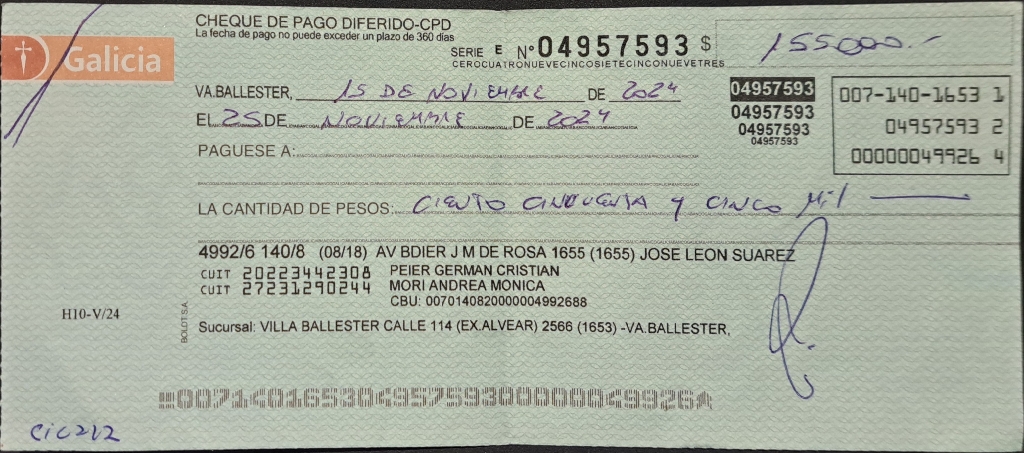 CHEQUE DE PAGO DIFERIDO-CPD
La fecha de pago no puede exceder un plazo de 360 días
Galicia
SERIE E Nº 04957593 $ 155000.-
CEROCUATRONUEVECINCOSIETECINCONUEVETRES
VA.BALLESTER, 15 DE NOVIEMBRE DE 2024
EL 25 DE NOVIEMBRE DE 2024
04957593
04957593
04957593
04957593
007-140-1653 1
04957593 2
00000049926 4
PAGUESE A:
LA CANTIDAD DE PESOS: CIENTO CINCUENTA Y CINCO MIL
4992/6 140/8 (08/18) AV BDIER J M DE ROSA 1655 (1655) JOSE LEON SUAREZ
CUIT 20223442308 PEIER GERMAN CRISTIAN
CUIT 27231290244 MORI ANDREA MONICA
CBU: 0070140820000004992688
Sucursal: VILLA BALLESTER CALLE 114 (EX.ALVEAR) 2566 (1653) -VA.BALLESTER,
H10-V/24
BOLDT S.A.
00714016530495759300000049926
CIC212